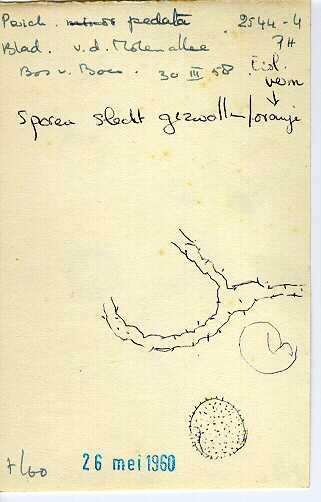 Perich. minor pedata 2544-4
Blad. v.d. Molen allee 7H
Bos v. Boss. 30 III 58.
verm
Sporen slecht gezwoll-/oranje
7/60
26 mei 1960